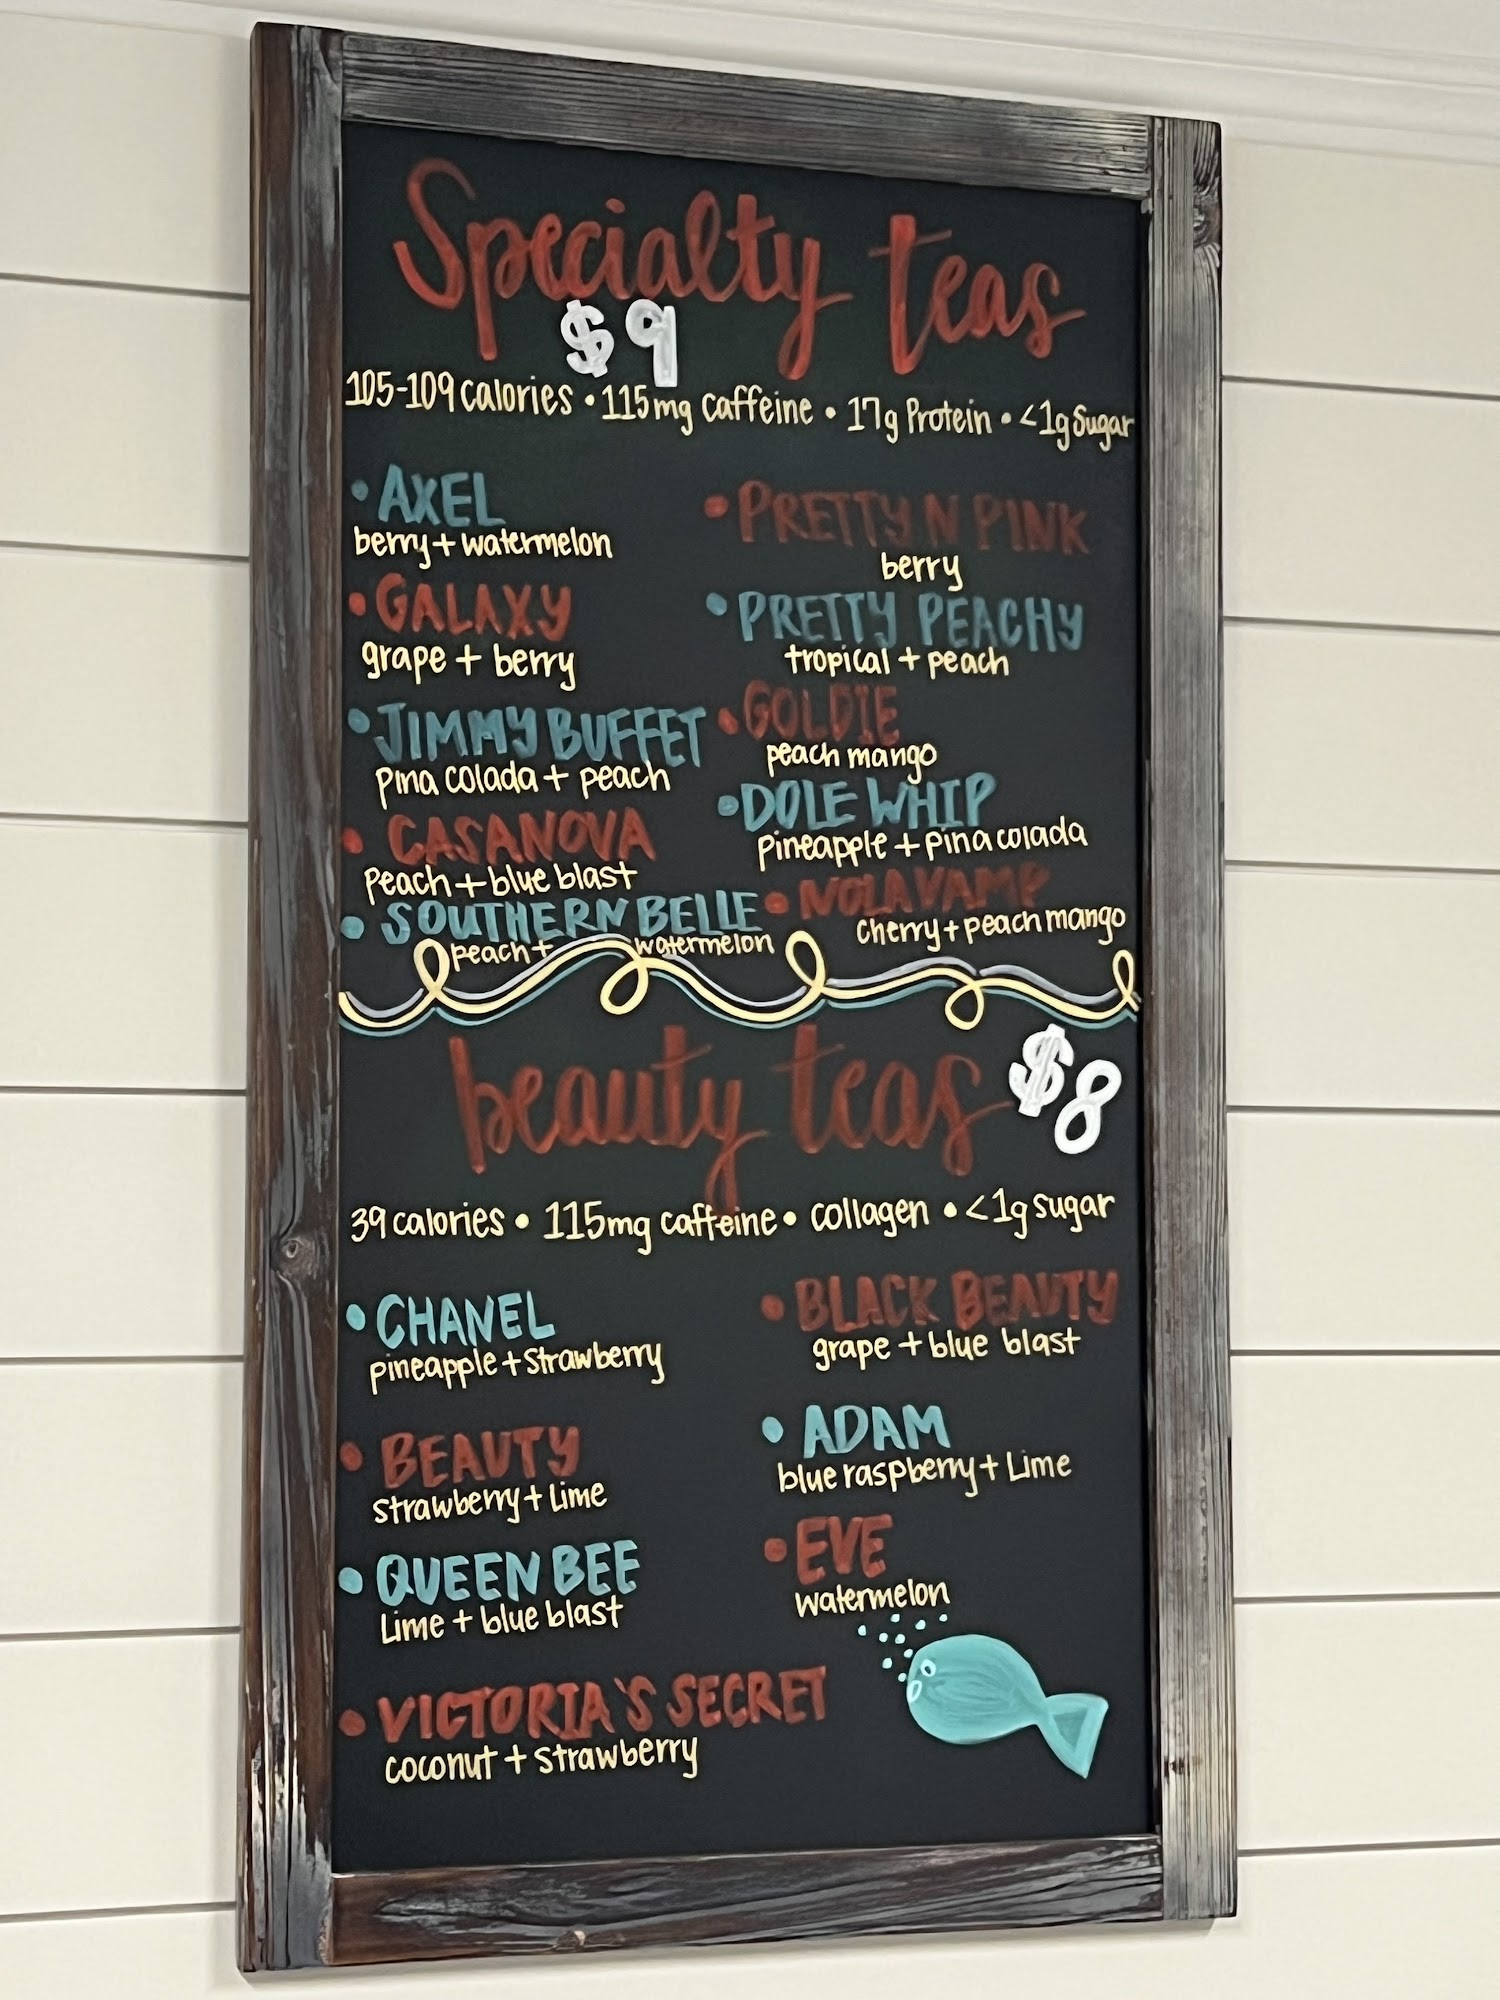 Specialty teas
$9
105-109 calories • 115mg caffeine • 17g Protein • <1g Sugar
• AXEL
berry + watermelon
• GALAXY
grape + berry
• JIMMY BUFFET
pina colada + peach
• CASANOVA
Peach + blue blast
• SOUTHERN BELLE
peach + watermelon
• PRETTY N PINK
berry
• PRETTY PEACHY
tropical + peach
• GOLDIE
peach mango
• DOLE WHIP
Pineapple + pina colada
• NOLA VAMP
cherry + peach mango
beauty teas $8
39 calories • 115mg caffeine • collagen • <1g sugar
• CHANEL
pineapple + strawberry
• BEAUTY
strawberry + Lime
• QUEEN BEE
Lime + blue blast
• VICTORIA'S SECRET
coconut + strawberry
• BLACK BEAUTY
grape + blue blast
• ADAM
blue raspberry + Lime
• EVE
watermelon